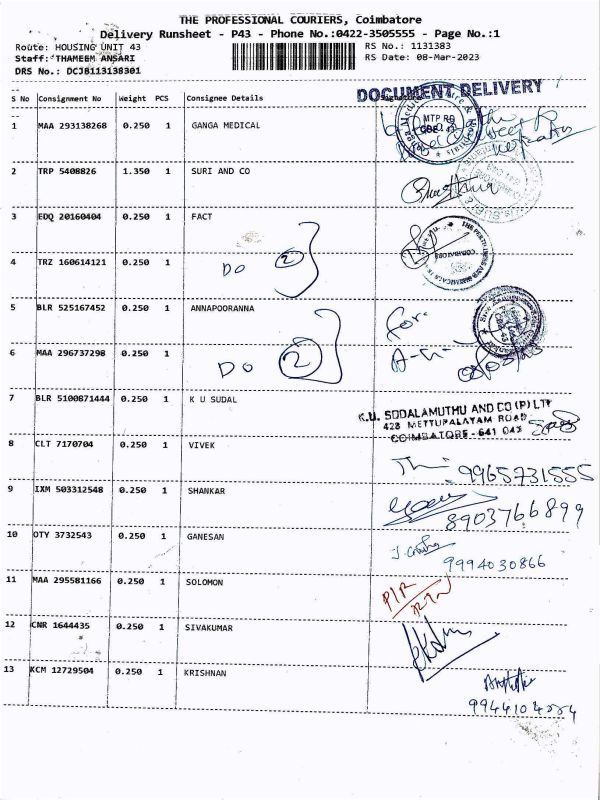 THE PROFESSIONAL COURIERS, Coimbatore
Delivery Runsheet - P43 - Phone No.:0422-3505555 - Page No.:1
Route: HOUSING UNIT 43 RS No.: 1131383
Staff: THAMEEM ANSARI RS Date: 08-Mar-2023
DRS No.: DCJB113138301
DOCUMENT DELIVERY
S No Consignment No Weight PCS Consignee Details
1 MAA 293138268 0.250 1 GANGA MEDICAL
MTP RD
2 TRP 5408826 1.350 1 SURI AND CO
3 EDQ 20160404 0.250 1 FACT
COIMBATORE
4 TRZ 160614121 0.250 1 DO 2
5 BLR 525167452 0.250 1 ANNAPOORANNA for
6 MAA 296737298 0.250 1 DO 2
7 BLR 5100871444 0.250 1 K U SUDAL
K.U. SODALAMUTHU AND CO (P) LTD
428 METTUPALAYAM ROAD
COIMBATORE - 641 043
8 CLT 7170704 0.250 1 VIVEK
9965731555
9 IXM 503312548 0.250 1 SHANKAR
8903766899
10 OTY 3732543 0.250 1 GANESAN
9994030866
11 MAA 295581166 0.250 1 SOLOMON
12 CNR 1644435 0.250 1 SIVAKUMAR
13 KCM 12729504 0.250 1 KRISHNAN